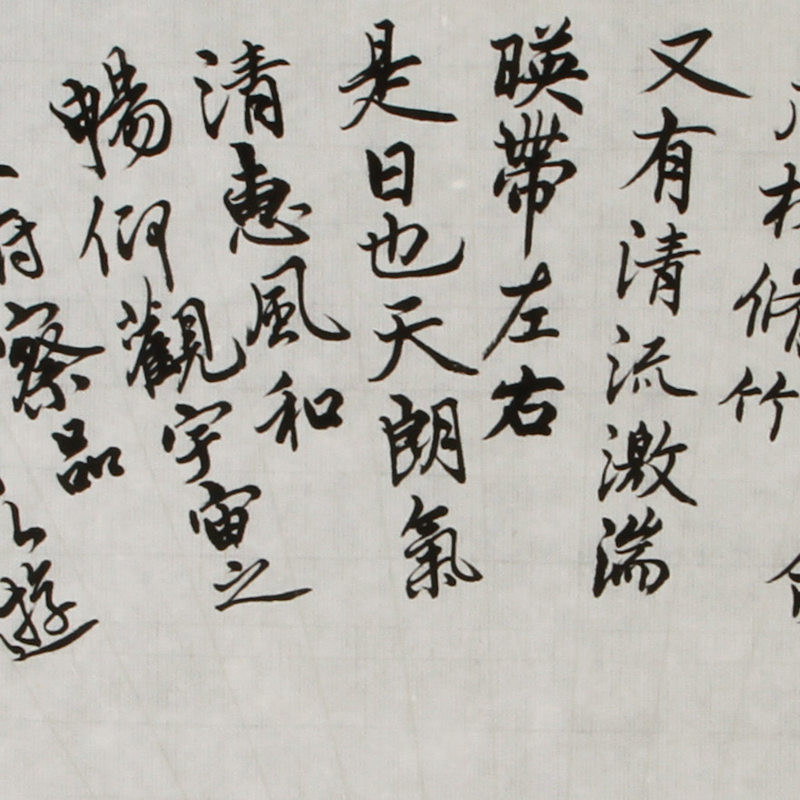 修竹
又有清流激湍
暎帶左右
是日也天朗氣
清惠風和
暢仰觀宇宙之
察品
遊